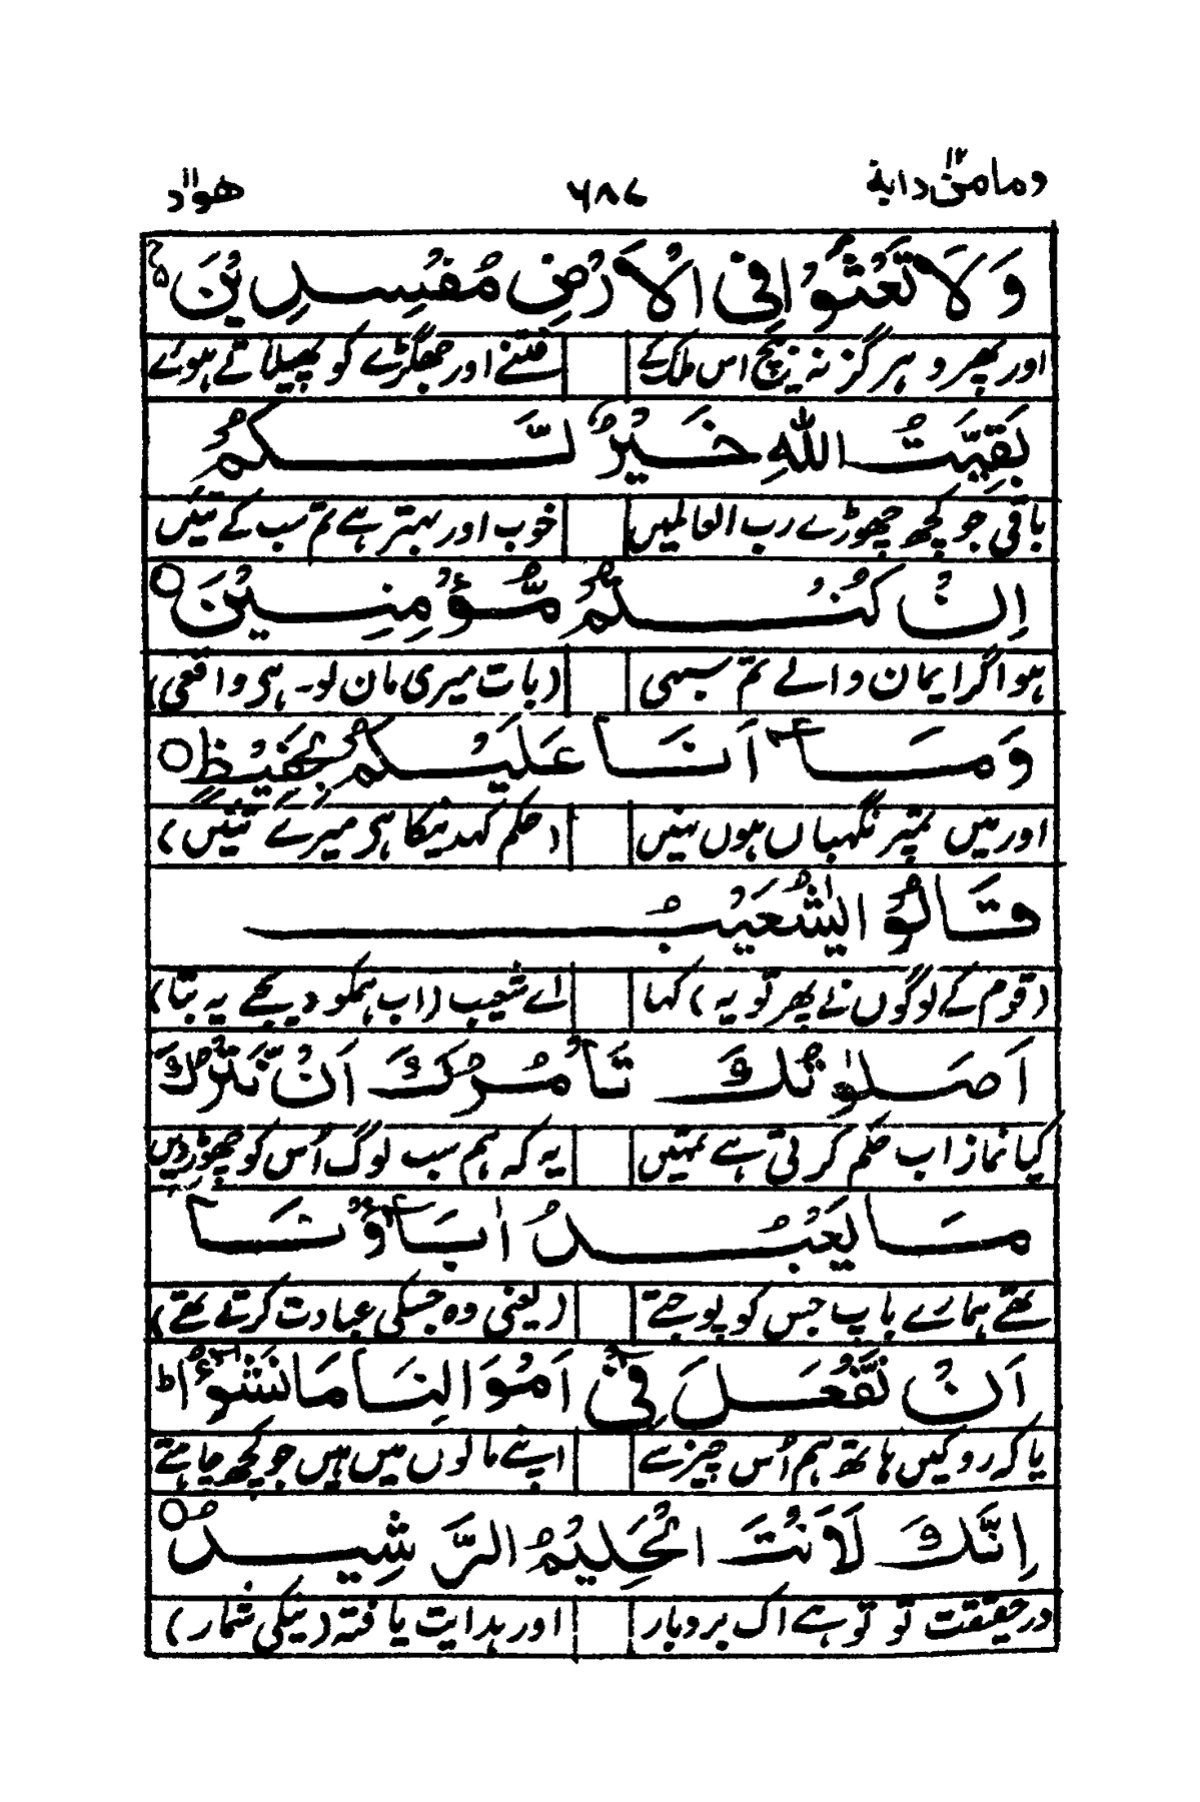 ومامن دابة ١٢ ٦٨٧ هود ١١
وَلَا تَعْثَوْا فِی الْاَرْضِ مُفْسِدِیْنَ
اور پھرو ہرگز نہ بیچ اس ملک کے فتنے اور جھگڑے کو پھیلاتے ہوئے
بَقِیَّتُ اللّٰهِ خَیْرٌ لَّكُمْ
باقی جو کچھ چھوڑے رب العالمیں خوب اور بہتر ہے تم سب کے تئیں
اِنْ كُنْتُمْ مُّؤْمِنِیْنَ ○
ہو اگر ایمان والے تم سبھی (بات میری مان لو۔ ہی واقعی)
وَمَاۤ اَنَا عَلَیْكُمْ بِحَفِیْظٍ ○
اور میں تمپر نگہباں ہوں نہیں (حکم کہدینیکا ہی میرے تئیں)
قَالُوْا یٰشُعَیْبُ
(قوم کے لوگوں نے پھر تو یہ) کہا اے شعیب (اب ہمکو دیجے یہ بتا)
اَصَلٰوتُكَ تَاْمُرُكَ اَنْ نَّتْرُكَ
کیا نماز اب حکم کرتی ہے تمہیں یہ کہ ہم سب لوگ اُس کو چھوڑدیں
مَا یَعْبُدُ اٰبَآؤُنَا
تھے ہمارے باپ جس کو پوجتے (یعنی وہ جسکی عبادت کرتے تھے)
اَنْ نَّفْعَلَ فِیْۤ اَمْوَالِنَا مَا نَشٰٓؤُا ط
یا کہ روکیں ہاتھ ہم اُس چیز سے اپنے مالوں میں ہیں جو کچھ چاہتے
اِنَّكَ لَاَنْتَ الْحَلِیْمُ الرَّشِیْدُ ○
درحقیقت تو تو ہے اک بردبار اور ہدایت یافتہ (نیکی شمار)